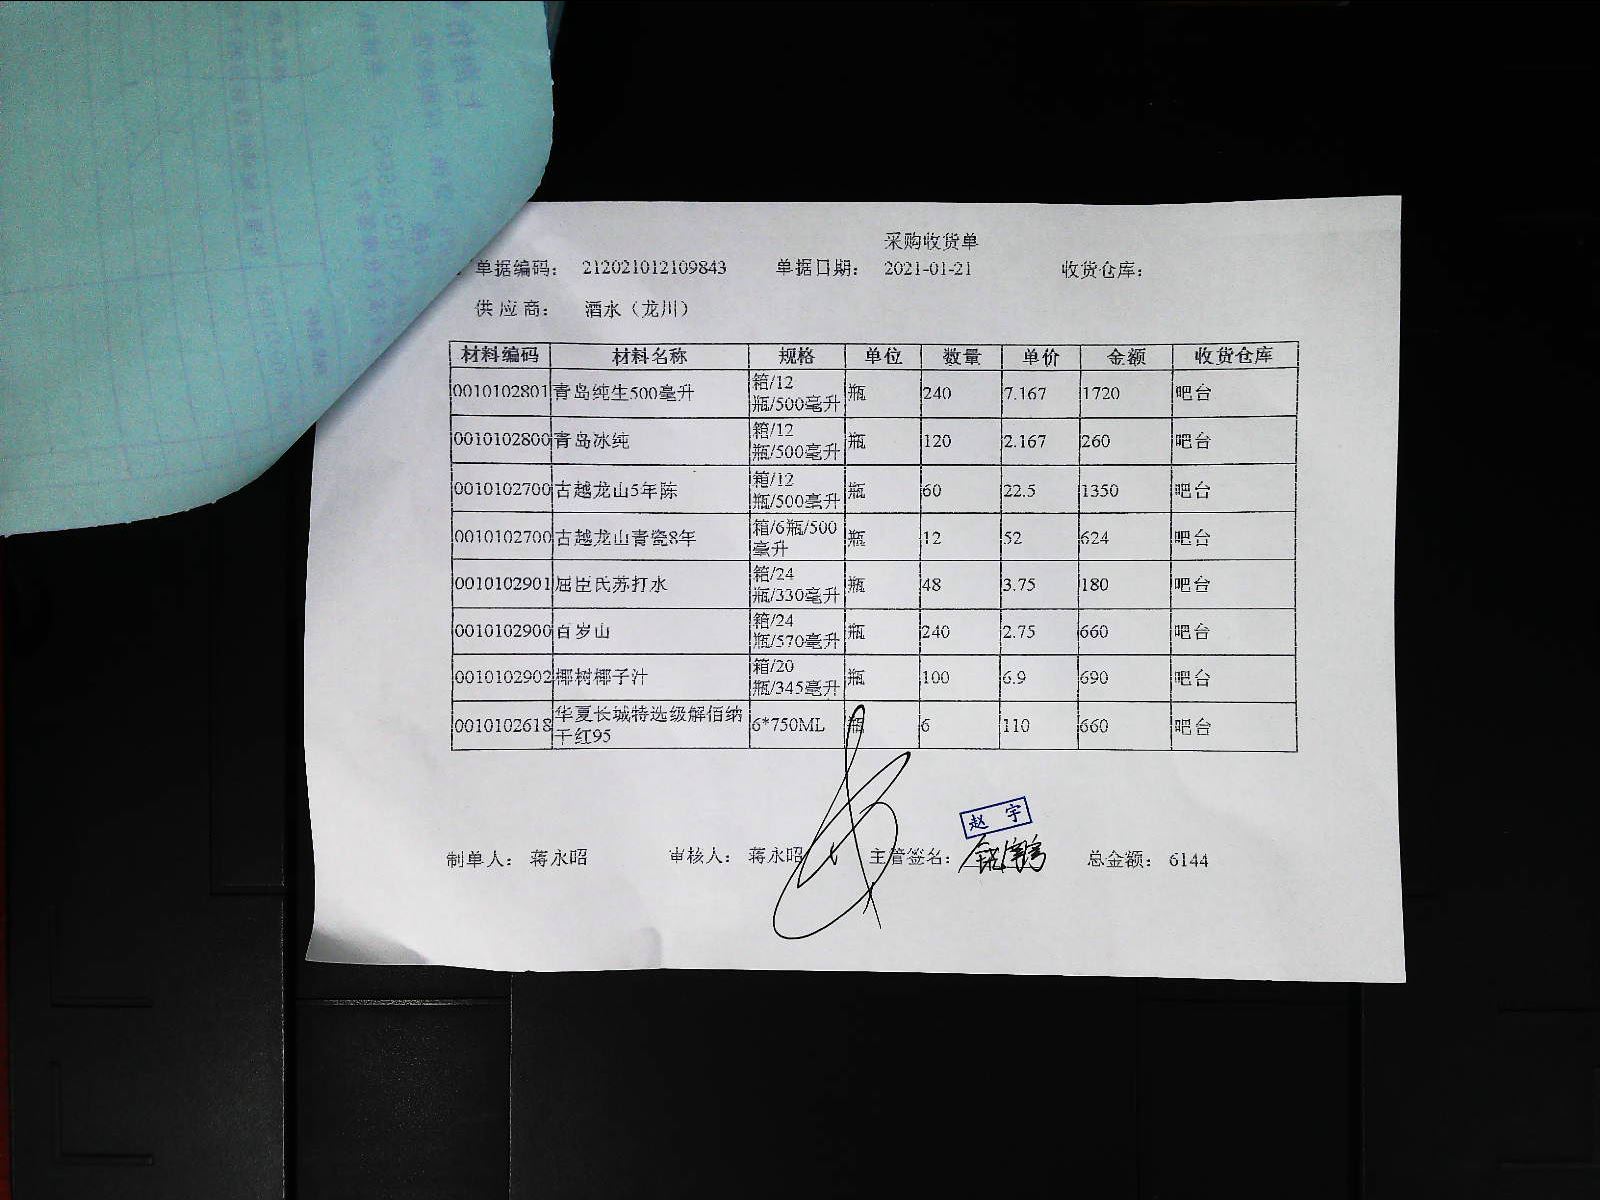 采购收货单
单据编码： 212021012109843 单据日期： 2021-01-21 收货仓库：
供 应 商： 酒水（龙川）
材料编码 材料名称 规格 单位 数量 单价 金额 收货仓库
0010102801 青岛纯生500毫升 箱/12瓶/500毫升 瓶 240 7.167 1720 吧台
0010102800 青岛冰纯 箱/12瓶/500毫升 瓶 120 2.167 260 吧台
0010102700 古越龙山5年陈 箱/12瓶/500毫升 瓶 60 22.5 1350 吧台
0010102700 古越龙山青瓷8年 箱/6瓶/500毫升 瓶 12 52 624 吧台
0010102901 屈臣氏苏打水 箱/24瓶/330毫升 瓶 48 3.75 180 吧台
0010102900 百岁山 箱/24瓶/570毫升 瓶 240 2.75 660 吧台
0010102902 椰树椰子汁 箱/20瓶/345毫升 瓶 100 6.9 690 吧台
0010102618 华夏长城特选级解佰纳干红95 6*750ML 瓶 6 110 660 吧台
赵 宇
制单人： 蒋永昭 审核人： 蒋永昭 主管签名： 总金额： 6144